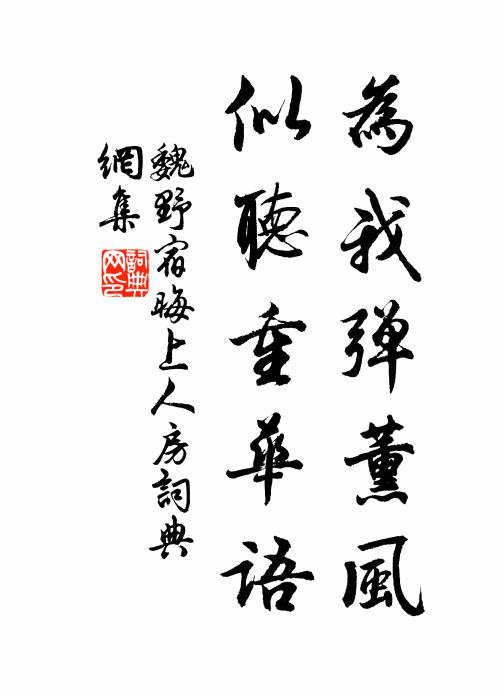 為我弹薰風
似聽重華語
魏野宿晦上人房詞典
網集
詞典
网印